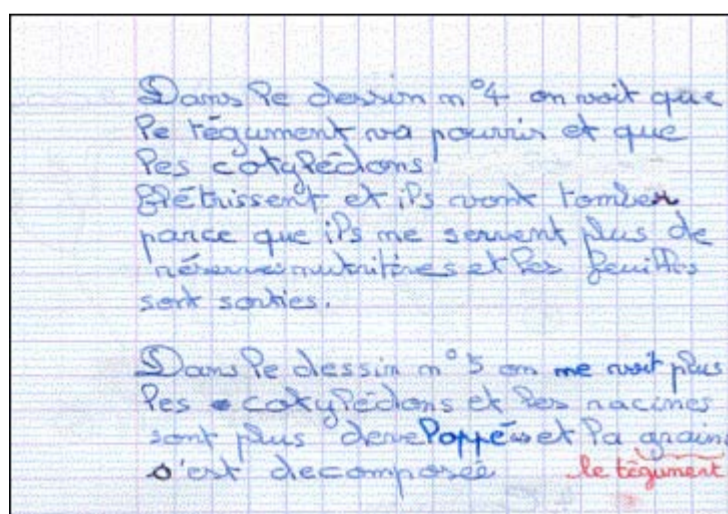 Dans le dessin n°4 on voit que
le tégument va pourrir et que
les cotylédons
flétrissent et ils vont tomber
parce que ils ne servent plus de
réserves nutritives et les feuilles
sont sorties.
Dans le dessin n°5 on ne voit plus
les cotylédons et les racines
sont plus developpées et la graine
s'est decomposée le tégument